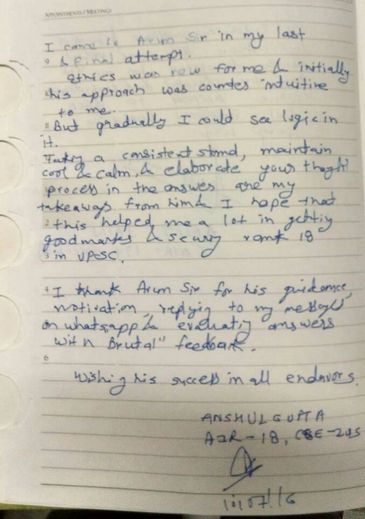 APPOINTMENTS / MEETINGS
I came to Arun Sir in my last
& final attempt.
Ethics was new for me & initially
his approach was counter intuitive
to me.
But gradually I could see logic in
it.
Taking a consistent stand, maintain
cool & calm, & elaborate your thought
process in the answer are my
takeaways from him & I hope that
this helped me a lot in getting
good marks & secury rank 18
in UPSC.
I thank Arun Sir for his guidance,
motivation, replying to my messages
on whatsapp & evaluatig answers
with Brutal" feedback.
6
Wishing his success in all endavors.
ANSHUL GUPTA
AIR-18, CSE-2015
10/07/16